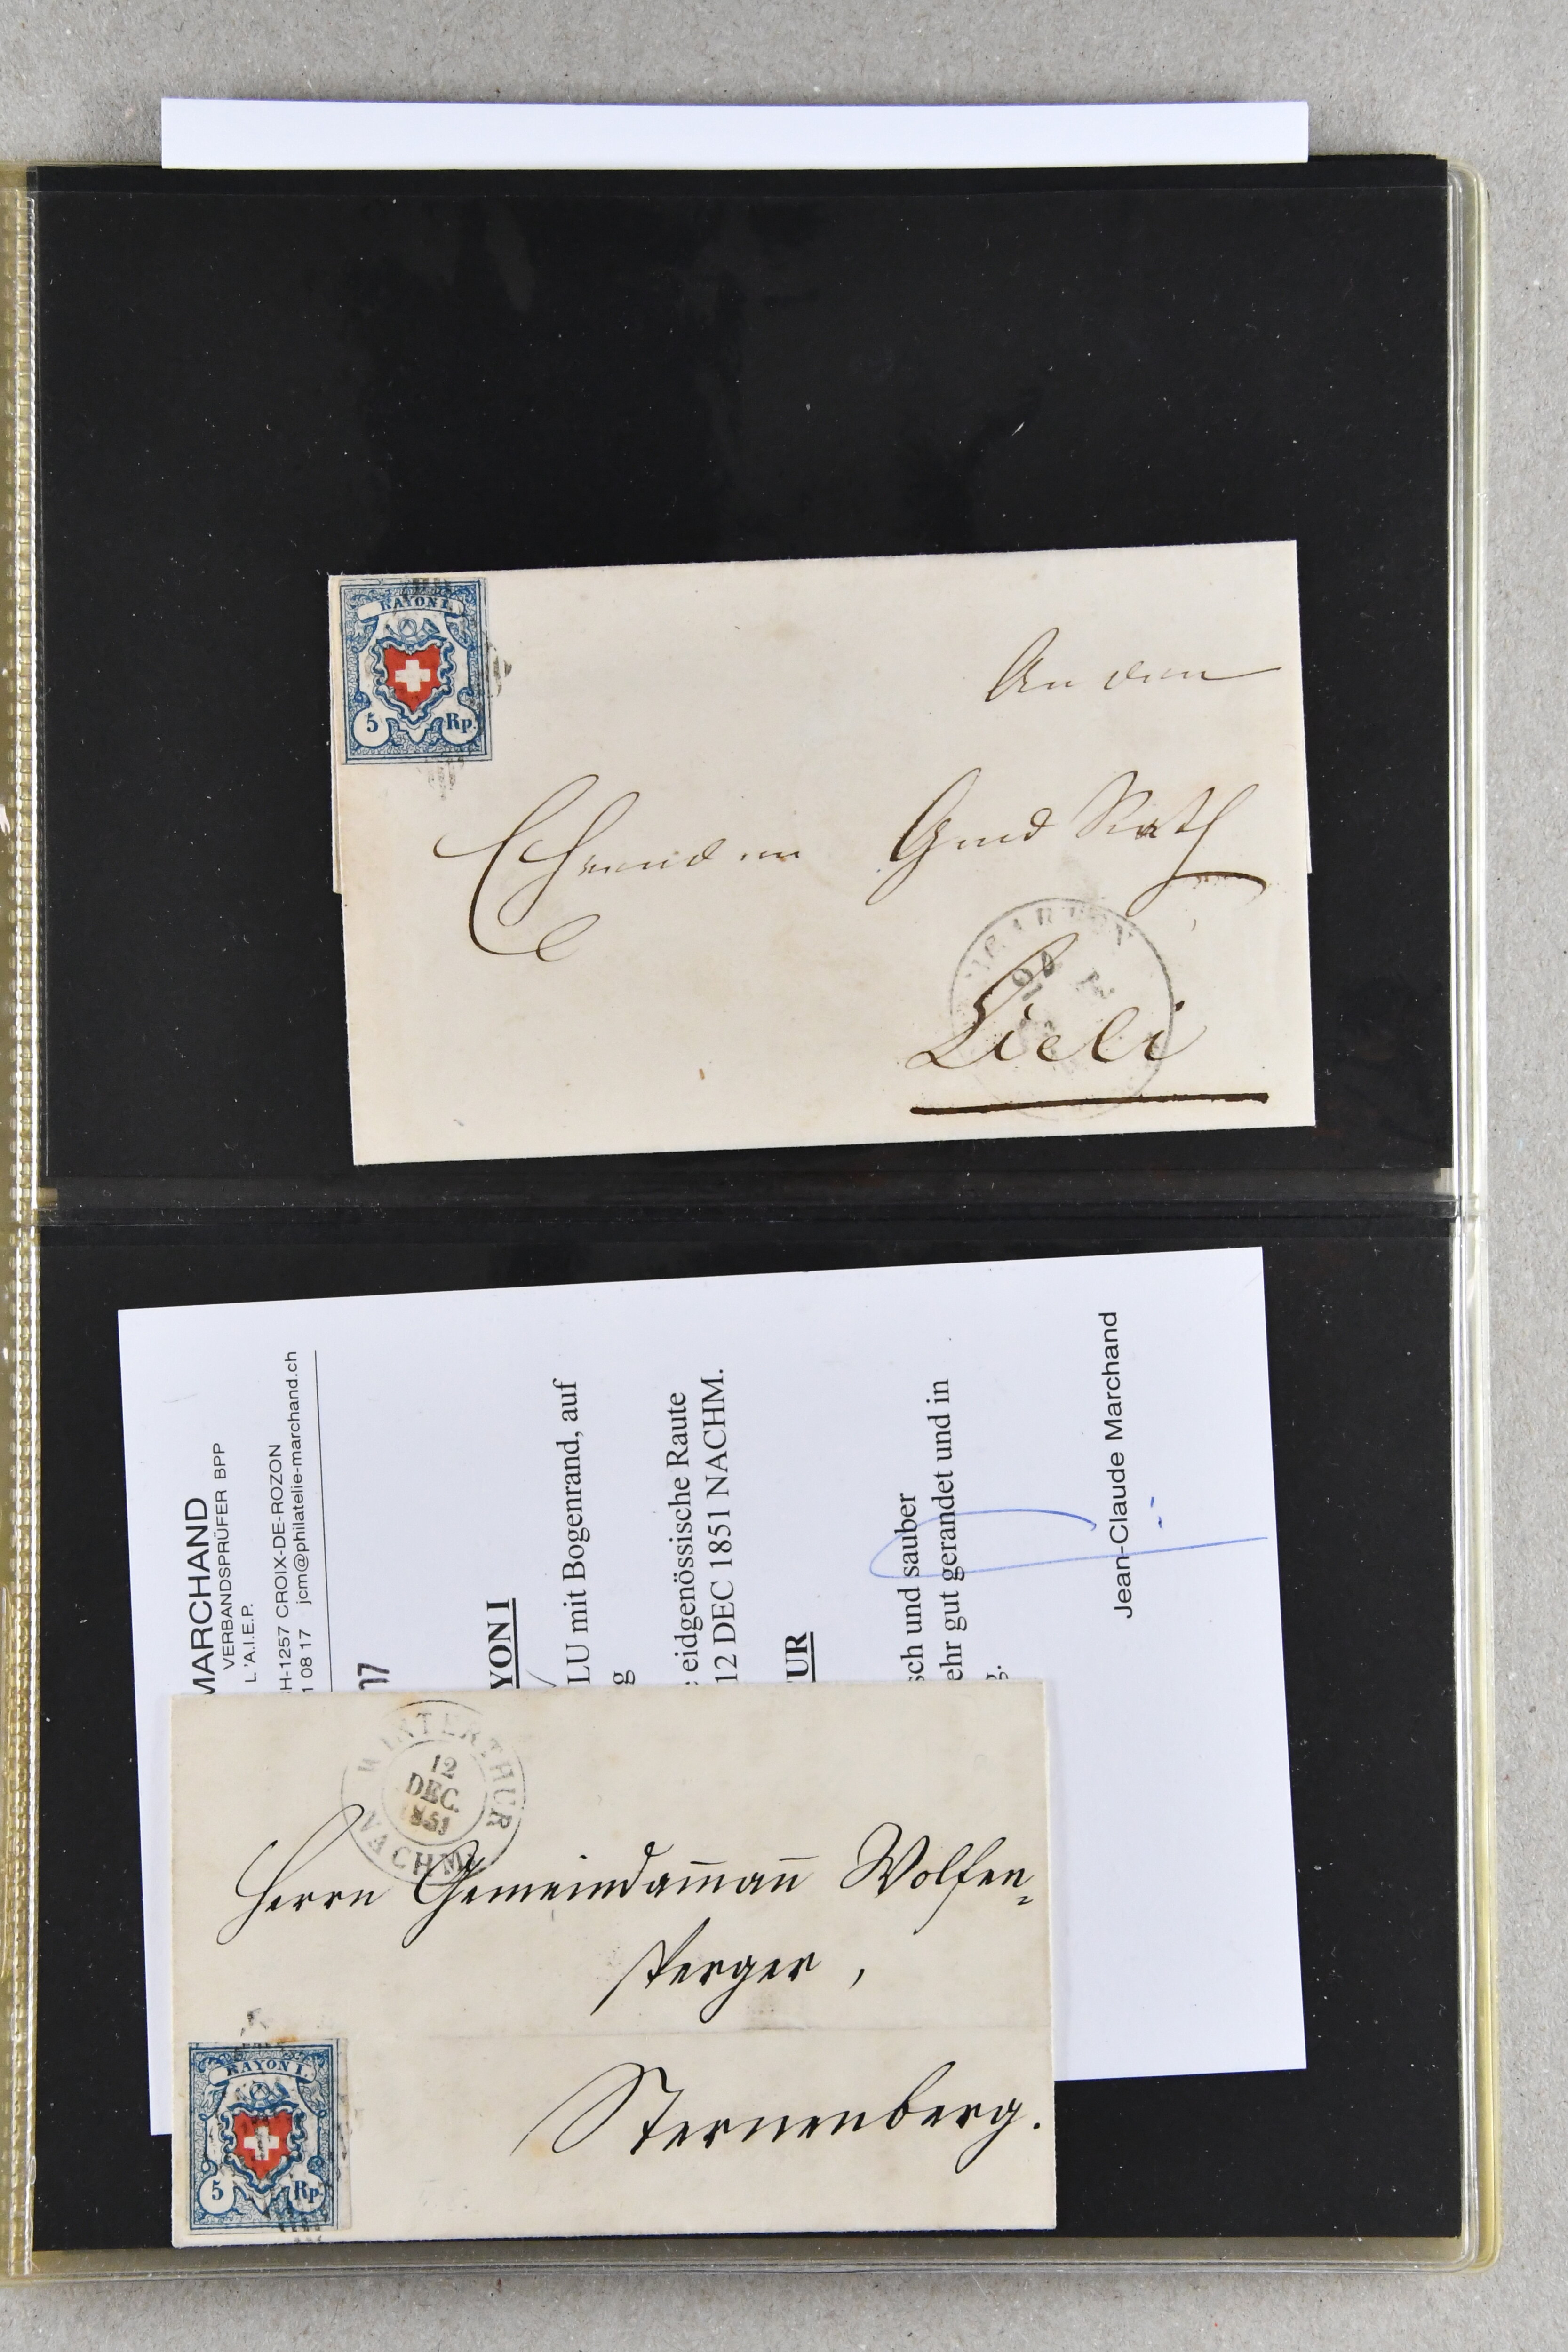 RAYON I.
5 Rp.
An den
Ehrenden Gmd Rath
Lieli
MARCHAND
VERBANDSPRÜFER BPP
L'A.I.E.P.
H-1257 CROIX-DE-ROZON
1 08 17 jcm@philatelie-marchand.ch
YON I
LU mit Bogenrand, auf
g
eidgenössische Raute
12 DEC 1851 NACHM.
UR
sch und sauber
ehr gut gerandet und in
g.
Jean-Claude Marchand
WINTERTHUR
12
DEC.
1851
NACHM.
Herrn Gemeindam̄an̄ Wolfen-
sperger,
Sternenberg.
RAYON I.
5 Rp.